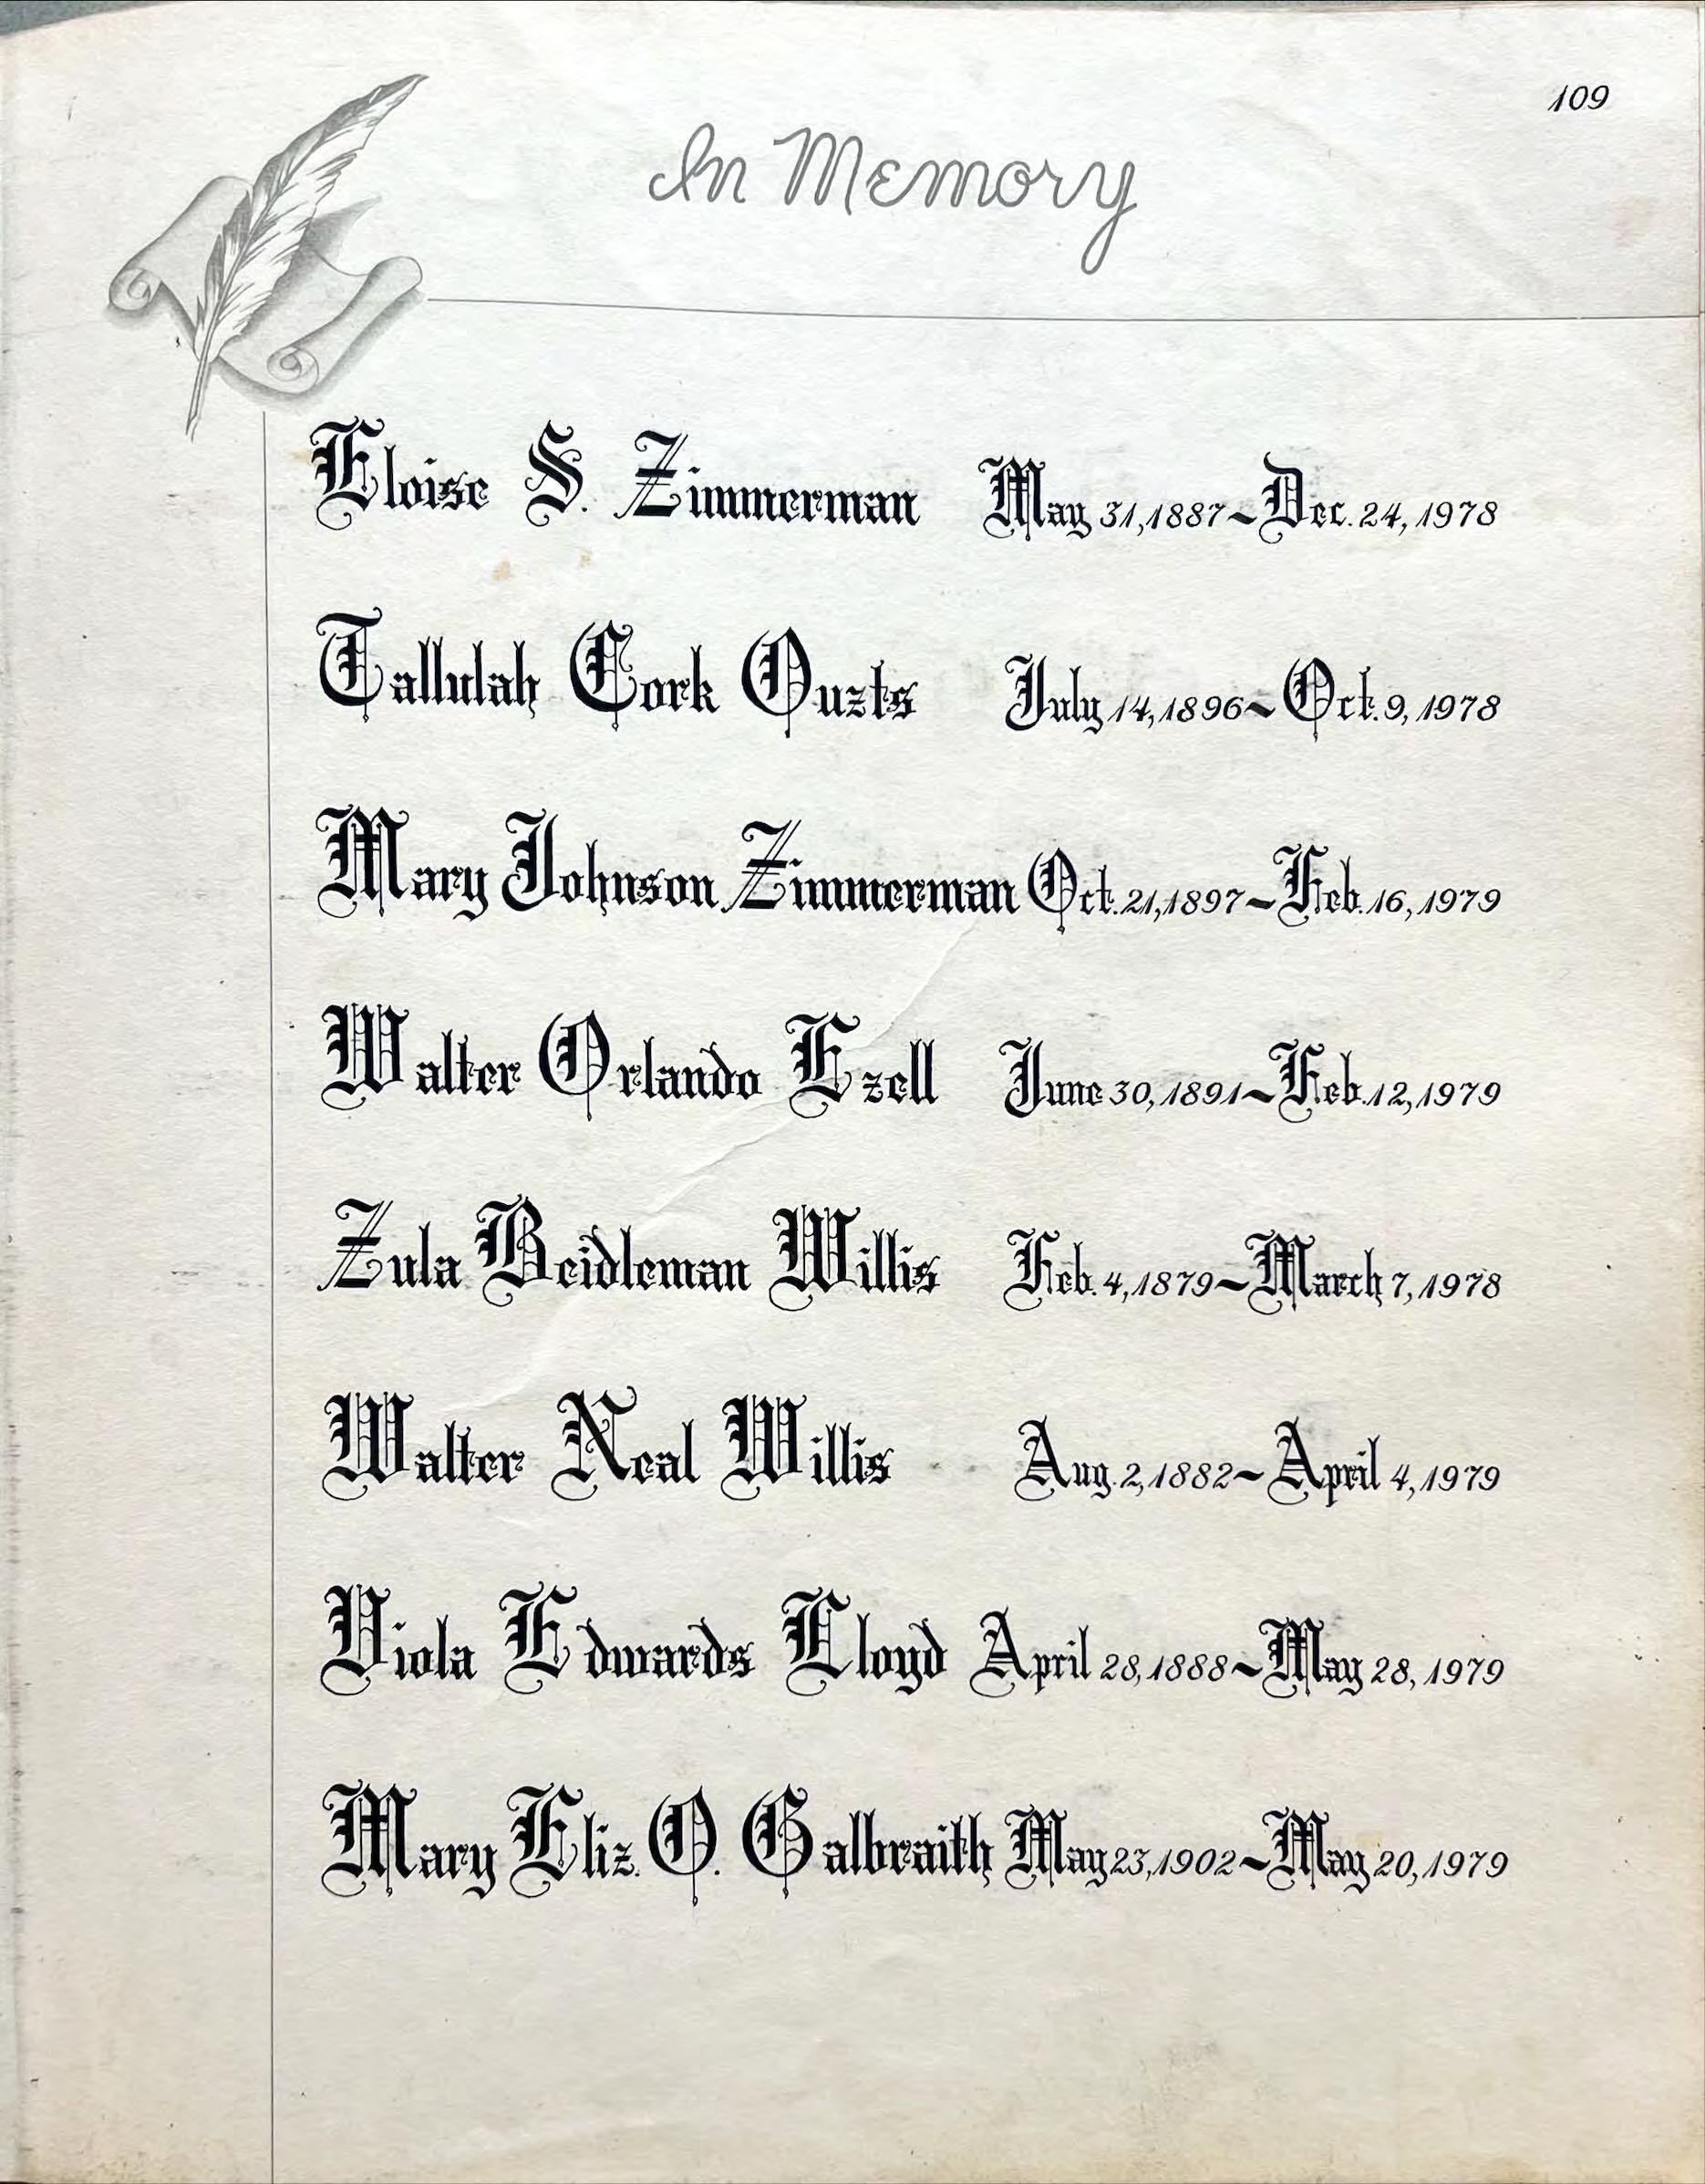 109
In Memory
Eloise S. Zimmerman May 31, 1887~Dec. 24, 1978
Tallulah Cork Ouzts July 14, 1896~Oct. 9, 1978
Mary Johnson Zimmerman Oct. 21, 1897~Feb. 16, 1979
Walter Orlando Ezell June 30, 1891~Feb. 12, 1979
Zula Beidleman Willis Feb. 4, 1879~March 7, 1978
Walter Neal Willis Aug. 2, 1882~April 4, 1979
Viola Edwards Lloyd April 28, 1888~May 28, 1979
Mary Eliz. O. Galbraith May 23, 1902~May 20, 1979